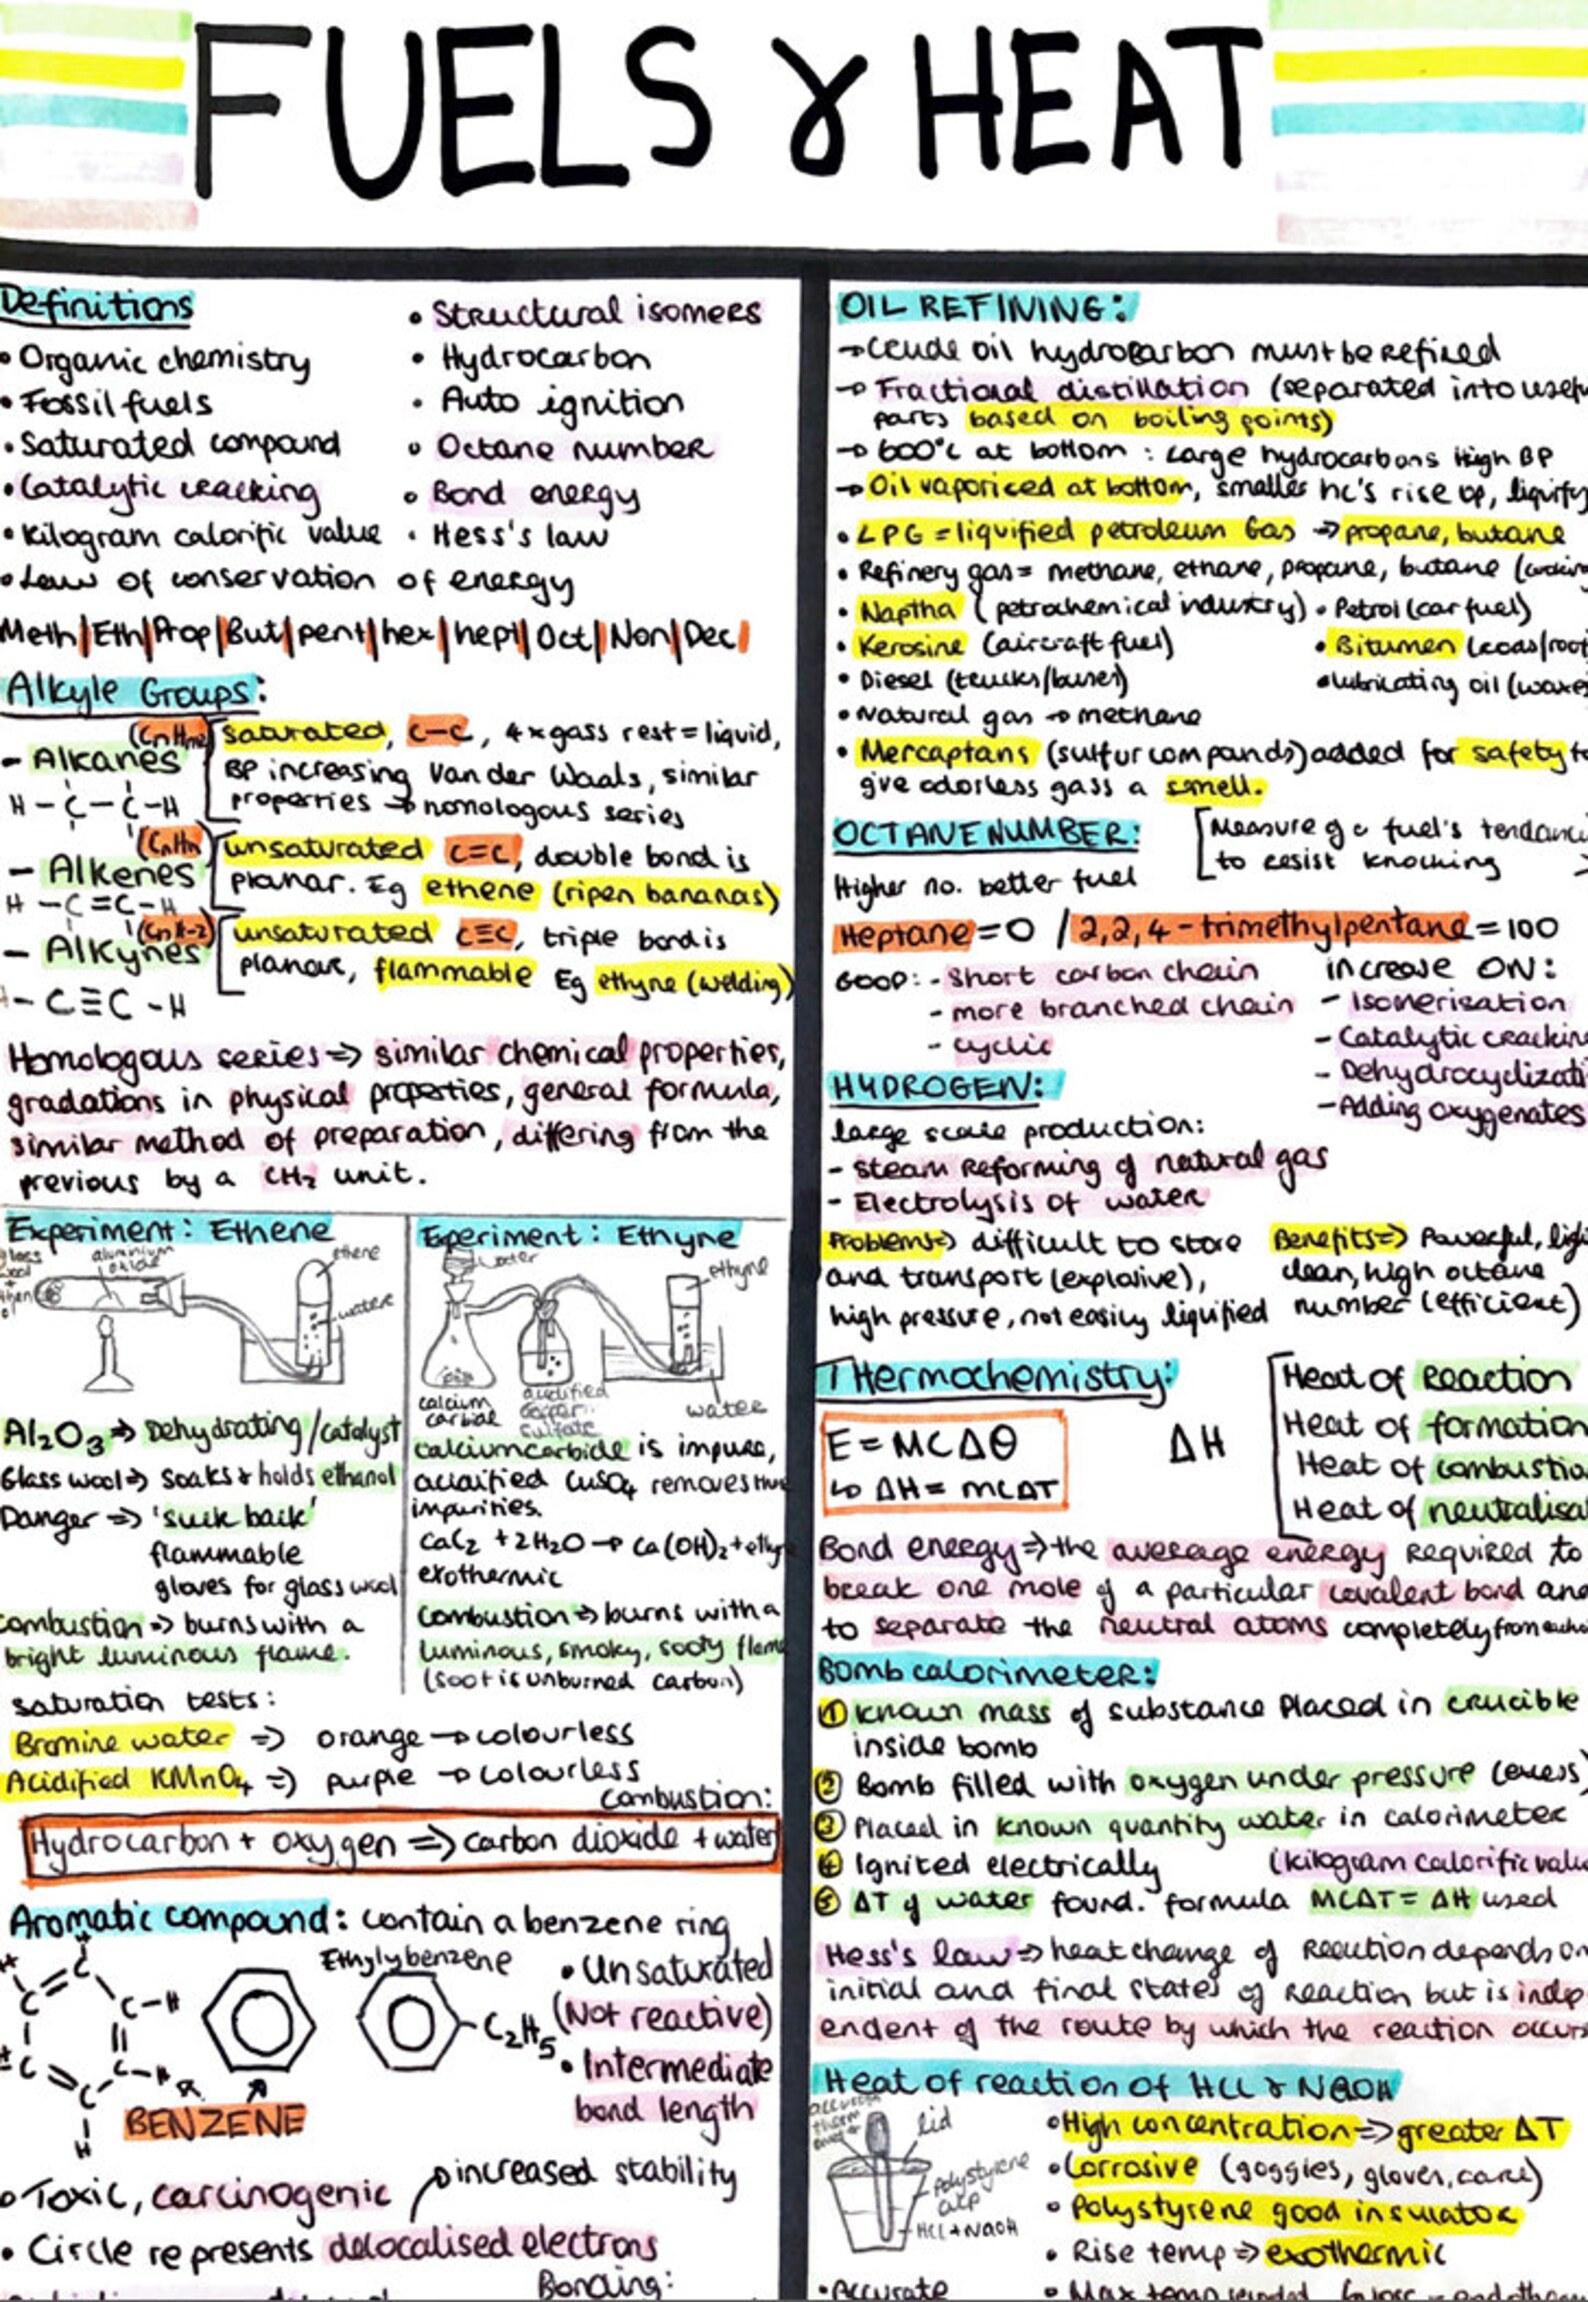 FUELS & HEAT
Definitions
• Organic chemistry
• Fossil fuels
• Saturated compound
• Catalytic cracking
• Kilogram calorific value
• Law of conservation of energy
• Structural isomers
• Hydrocarbon
• Auto ignition
• Octane number
• Bond energy
• Hess's law
Meth|Eth|Prop|But|pent|hex|hept|Oct|Non|Dec|
Alkyle Groups:
- Alkanes
saturated, C-C, 4xgass rest = liquid,
BP increasing Van der Waals, similar
properties → homologous series
H - C - C - H
- Alkenes
(CnHn)
unsaturated C=C, double bond is
planar. Eg ethene (ripen bananas)
H - C = C - H
- Alkynes
unsaturated C≡C, triple bond is
planar, flammable Eg ethyne (welding)
- C≡C - H
Homologous series => similar chemical properties,
gradations in physical properties, general formula,
similar method of preparation, differing from the
previous by a CH2 unit.
Experiment: Ethene
aluminium
oxide
ethene
water
Al2O3 => Dehydrating/catalyst
Glass wool => soaks & holds ethanol
Danger => 'suck back'
flammable
gloves for glass wool
combustion => burns with a
bright luminous flame.
Experiment: Ethyne
water
ethyne
calcium
carbide
acidified
copper
sulfate
water
calciumcarbide is impure,
acidified CuSO4 removes
impurities.
CaC2 + 2H2O → Ca(OH)2 +
exothermic
Combustion => burns with a
luminous, smoky, sooty flame
(soot is unburned carbon)
saturation tests:
Bromine water => orange → colourless
Acidified KMnO4 => purple → colourless
Combustion:
Hydrocarbon + oxygen => carbon dioxide + water
Aromatic compound: contain a benzene ring
Ethylybenzene
C2H5
BENZENE
• Unsaturated
(Not reactive)
• Intermediate
bond length
• Toxic, carcinogenic
increased stability
• Circle represents delocalised electrons
Bonding:
OIL REFINING:
→ Crude oil hydrocarbon must be refined
→ Fractional distillation (separated into usef
parts based on boiling points)
→ 600°C at bottom : Large hydrocarbons High BP
→ Oil vaporiced at bottom, smaller hc's rise up, liquify
• LPG = liquified petroleum Gas → propane, butane
• Refinery gas = methane, ethane, propane, butane
• Naptha (petrochemical industry) • Petrol (car fuel)
• Kerosine (aircraft fuel)
• Bitumen
• Diesel (trucks/buses)
• lubricating oil
• Natural gas → methane
• Mercaptans (sulfur compands) added for safety to
give odorless gass a smell.
OCTANE NUMBER:
Measure of a fuel's
to resist knocking
Higher no. better fuel
Heptane = 0 / 2,2,4 - trimethylpentane = 100
GOOD: - short carbon chain
- more branched chain
- cyclic
increase ON:
- Isomerisation
- Catalytic crackin
- Dehydrocyclizati
- Adding oxygenates
HYDROGEN:
large scale production:
- steam Reforming of natural gas
- Electrolysis of water
Problems => difficult to store
and transport (explosive),
high pressure, not easily liquified
Benefits => Powerful, lig
clean, high octane
number (efficient)
THermochemistry:
E = MCΔθ
↳ ΔH = MCΔT
ΔH
Heat of Reaction
Heat of formation
Heat of combustio
Heat of neutralisa
Bond energy => the average energy required to
break one mole of a particular covalent bond and
to separate the neutral atoms completely from
Bomb calorimeter:
① known mass of substance Placed in crucible
inside bomb
② Bomb filled with oxygen under pressure (excess)
③ Placed in known quantity water in calorimeter
④ Ignited electrically (kilogram calorific valu
⑤ ΔT of water found. formula MCΔT = ΔH used
Hess's law => heat change of Reaction depends on
initial and final states of reaction but is indep-
endent of the route by which the reaction occurs
Heat of reaction of HCl & NaOH
lid
polystyrene
cup
HCl + NaOH
• High concentration => greater ΔT
• Corrosive (goggles, gloves, care)
• Polystyrene good insulator
• Rise temp => exothermic
• Accurate